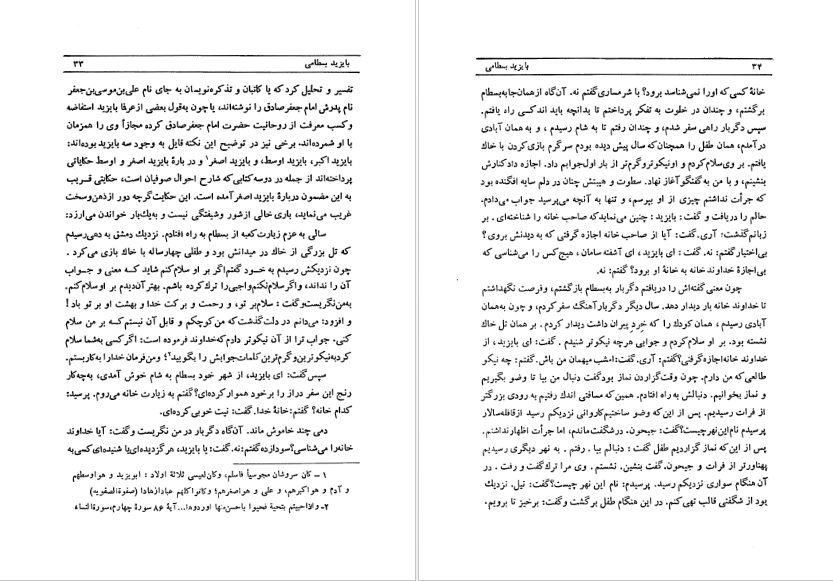 بایزید بسطامی ۳۳
تفسیر و تحلیل کرد که یا کاتبان و تذکره‌نویسان به جای نام علی‌بن‌موسی‌بن‌جعفر
نام پدرش امام جعفرصادق را نوشته‌اند، یا چون به‌قول بعضی ازعرفا بایزید استفاضه
وکسب معرفت از روحانیت حضرت امام جعفرصادق کرده مجازاً وی را همزمان
با او شمرده‌اند. برخی نیز در توضیح این نکته قایل به وجود سه بایزید بوده‌اند:
بایزید اکبر، بایزید اوسط، و بایزید اصغر۱ و در بارهٔ بایزید اصغر و اوسط حکایاتی
پرداخته‌اند از جمله در دوسه کتابی که شارح احوال صوفیان است، حکایتی قریب
به این مضمون دربارهٔ بایزید اصغرآمده است. این حکایت گرچه دور از ذهن وسخت
غریب می‌نماید، باری خالی ازشور وشیفتگی نیست و به‌یک‌بار خواندن می‌ارزد:
سالی به عزم زیارت کعبه از بسطام به راه افتادم. نزدیک دمشق به دهی رسیدم
که تل بزرگی از خاک در میدانش بود و طفلی چهارساله با خاک بازی می‌کرد.
چون نزدیکش رسیدم به خود گفتم اگر بر او سلام کنم شاید که معنی و جواب
آن را نداند، و اگر سلام نکنم واجبی را ترک کرده باشم. بهتر آن دیدم بر او سلام کنم.
به‌من نگریست و گفت: سلام بر تو، و رحمت و برکت خدا و بهشت او بر تو باد!
و افزود: می‌دانم در دلت گذشت که من کوچکم و قابل آن نیستم که بر من سلام
کنی. جواب ترا از آن نکوتر دادم که خداوند فرموده است: اگر کسی به شما سلام
کرد به نیکوترین و گرم‌ترین کلمات جوابش را بگویید۲؛ و من فرمان خدا را به کار بستم.
سپس گفت: ای بایزید، از شهر خود بسطام به شام خوش آمدی، به‌چه‌کار
رنج این سفر دراز را برخود هموار کرده‌ای؟ گفتم به زیارت خانه می‌روم. پرسید:
کدام خانه؟ گفتم: خانهٔ خدا. گفت: نیت خوبی کرده‌ای.
دمی چند خاموش ماند. آن‌گاه دگربار در من نگریست و گفت: آیا خداوند
خانه را می‌شناسی؟ سودازده گفتم: نه. گفت: یا بایزید، هرگز دیده‌ای یا شنیده‌ای کسی به
۱ – کان سروشان مجوسیاً فاسلم، وکان لعیسی ثلاثة اولاد: ابویزید و هو اوسطهم
و آدم و هو اکبرهم، و علی و هو اصغرهم؛ وکانوا کلهم عبادا زهادا (صفوة‌الصفویه)
۲- و اذا حییتم بتحیة فحیوا باحسن منها او ردوها... آیهٔ ۸۶ سورهٔ چهارم، سورةالنساء.
۳۴ بایزید بسطامی
خانهٔ کسی که او را نمی‌شناسد برود؟ با شرمساری گفتم نه. آن‌گاه از همان جا به بسطام
برگشتم، و چندان در خلوت به تفکر پرداختم تا بدانچه باید اندکسی راه یافتم.
سپس دگربار راهی سفر شدم، و چندان رفتم تا به شام رسیدم، و به همان آبادی
درآمدم، همان طفل را همچنان که سال پیش دیده بودم سرگرم بازی کردن با خاک
یافتم. بر وی سلام کردم و او نیکوتر و گرم‌تر از بار اول جوابم داد. اجازه داد کنارش
بنشینم، و با من به گفتگو آغاز نهاد. سطوت و هیبتش چنان در دلم سایه افگنده بود
که جرأت نداشتم چیزی از او بپرسم، و تنها به آنچه می‌پرسید جواب می‌دادم.
حالم را دریافت و گفت: بایزید: چنین می‌نماید که صاحب خانه را شناخته‌ای. بر
زبانم گذشت: آری. گفت: آیا از صاحب خانه اجازه گرفتی که به دیدنش بروی؟
بی‌اختیار گفتم: نه. گفت: ای بایزید، ای آشفته سامان، هیچ کس را می‌شناسی که
بی‌اجازهٔ خداوند خانه به خانهٔ او برود؟ گفتم: نه.
چون معنی گفته‌اش را دریافتم دگربار به‌بسطام بازگشتم، وفرصت نگهداشتم
تا خداوند خانه بار دیدار دهد. سال دیگر دگربار آهنگ سفر کردم، و چون به‌همان
آبادی رسیدم، همان کودک را که خرد پیران داشت دیدار کردم. بر همان تل خاک
نشسته بود. بر او سلام کردم و جوابی هرچه نیکوتر شنیدم. گفت: ای بایزید، از
خداوند خانه اجازه گرفتی؟ گفتم: آری. گفت: امشب میهمان من باش. گفتم: چه نیکو
طالعی که من دارم. چون وقت گزاردن نماز بود گفت دنبال من بیا تا وضو بگیریم
و نماز بخوانیم. دنبالش به راه افتادم. همین که مسافتی اندک رفتیم به رودی بزرگتر
از فرات رسیدیم. پس از این که وضو ساختیم کاروانی نزدیکم رسید از قافله‌سالار
پرسیدم نام این نهر چیست؟ گفت: جیحون. در شگفت ماندم، اما جرأت اظهار نداشتم.
پس از این که نماز گزاردیم طفل گفت: دنبالم بیا. رفتم. به نهر دیگری رسیدیم
پهناورتر از فرات و جیحون. گفت بنشین. نشستم. وی مرا ترک گفت و رفت. در
آن هنگام سواری نزدیکم رسید. پرسیدم: نام این نهر چیست؟ گفت: نیل. نزدیک
بود از شگفتی قالب تهی کنم. در این هنگام طفل برگشت و گفت: برخیز تا برویم.